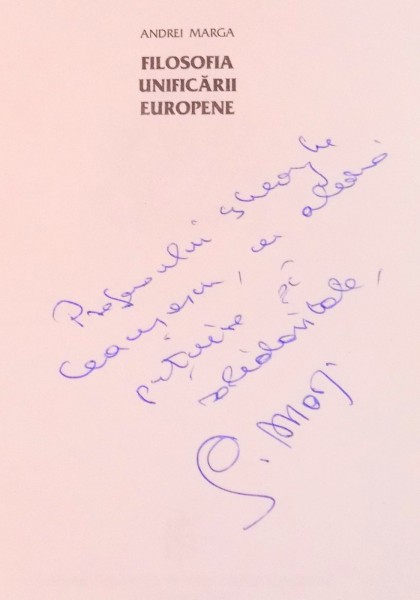 ANDREI MARGA
FILOSOFIA
UNIFICĂRII
EUROPENE
Profesorului Gheorghe
Ceaușescu, cu aleasă
prețuire și
solidaritate,
A. Marga